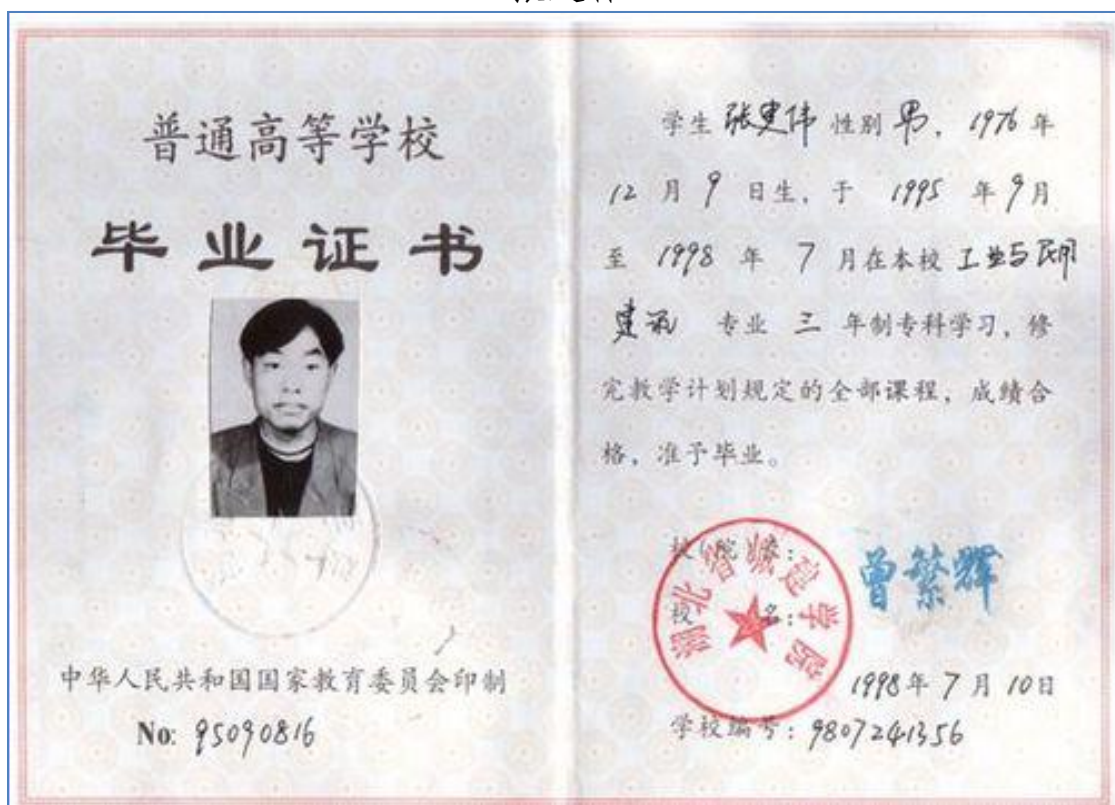 普通高等学校
毕业证书
中华人民共和国国家教育委员会印制
No: 95090816
学生 张建伟 性别 男, 1976 年
12 月 9 日生, 于 1995 年 9 月
至 1998 年 7 月在本校 工业与民用
建筑 专业 三 年制专科学习, 修
完教学计划规定的全部课程, 成绩合
格, 准予毕业。
校(院)长: 曾繁辉
校 名:
湖北省城建学院
1998 年 7 月 10 日
学校编号: 9807241356